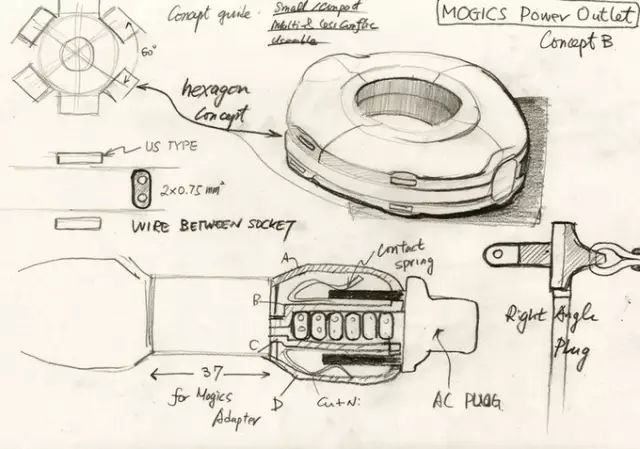 Concept guide. Small/compact
Multi & Less Conflic
Useable
MOGICS POWER OUTLET
Concept B
60°
hexagon
Concept
US TYPE
2×0.75 mm²
WIRE BETWEEN SOCKET
A
Contact
spring
B
C
D
37
for Mogics
Adapter
Cu+Ni
AC PLUG
Right Angle
Plug